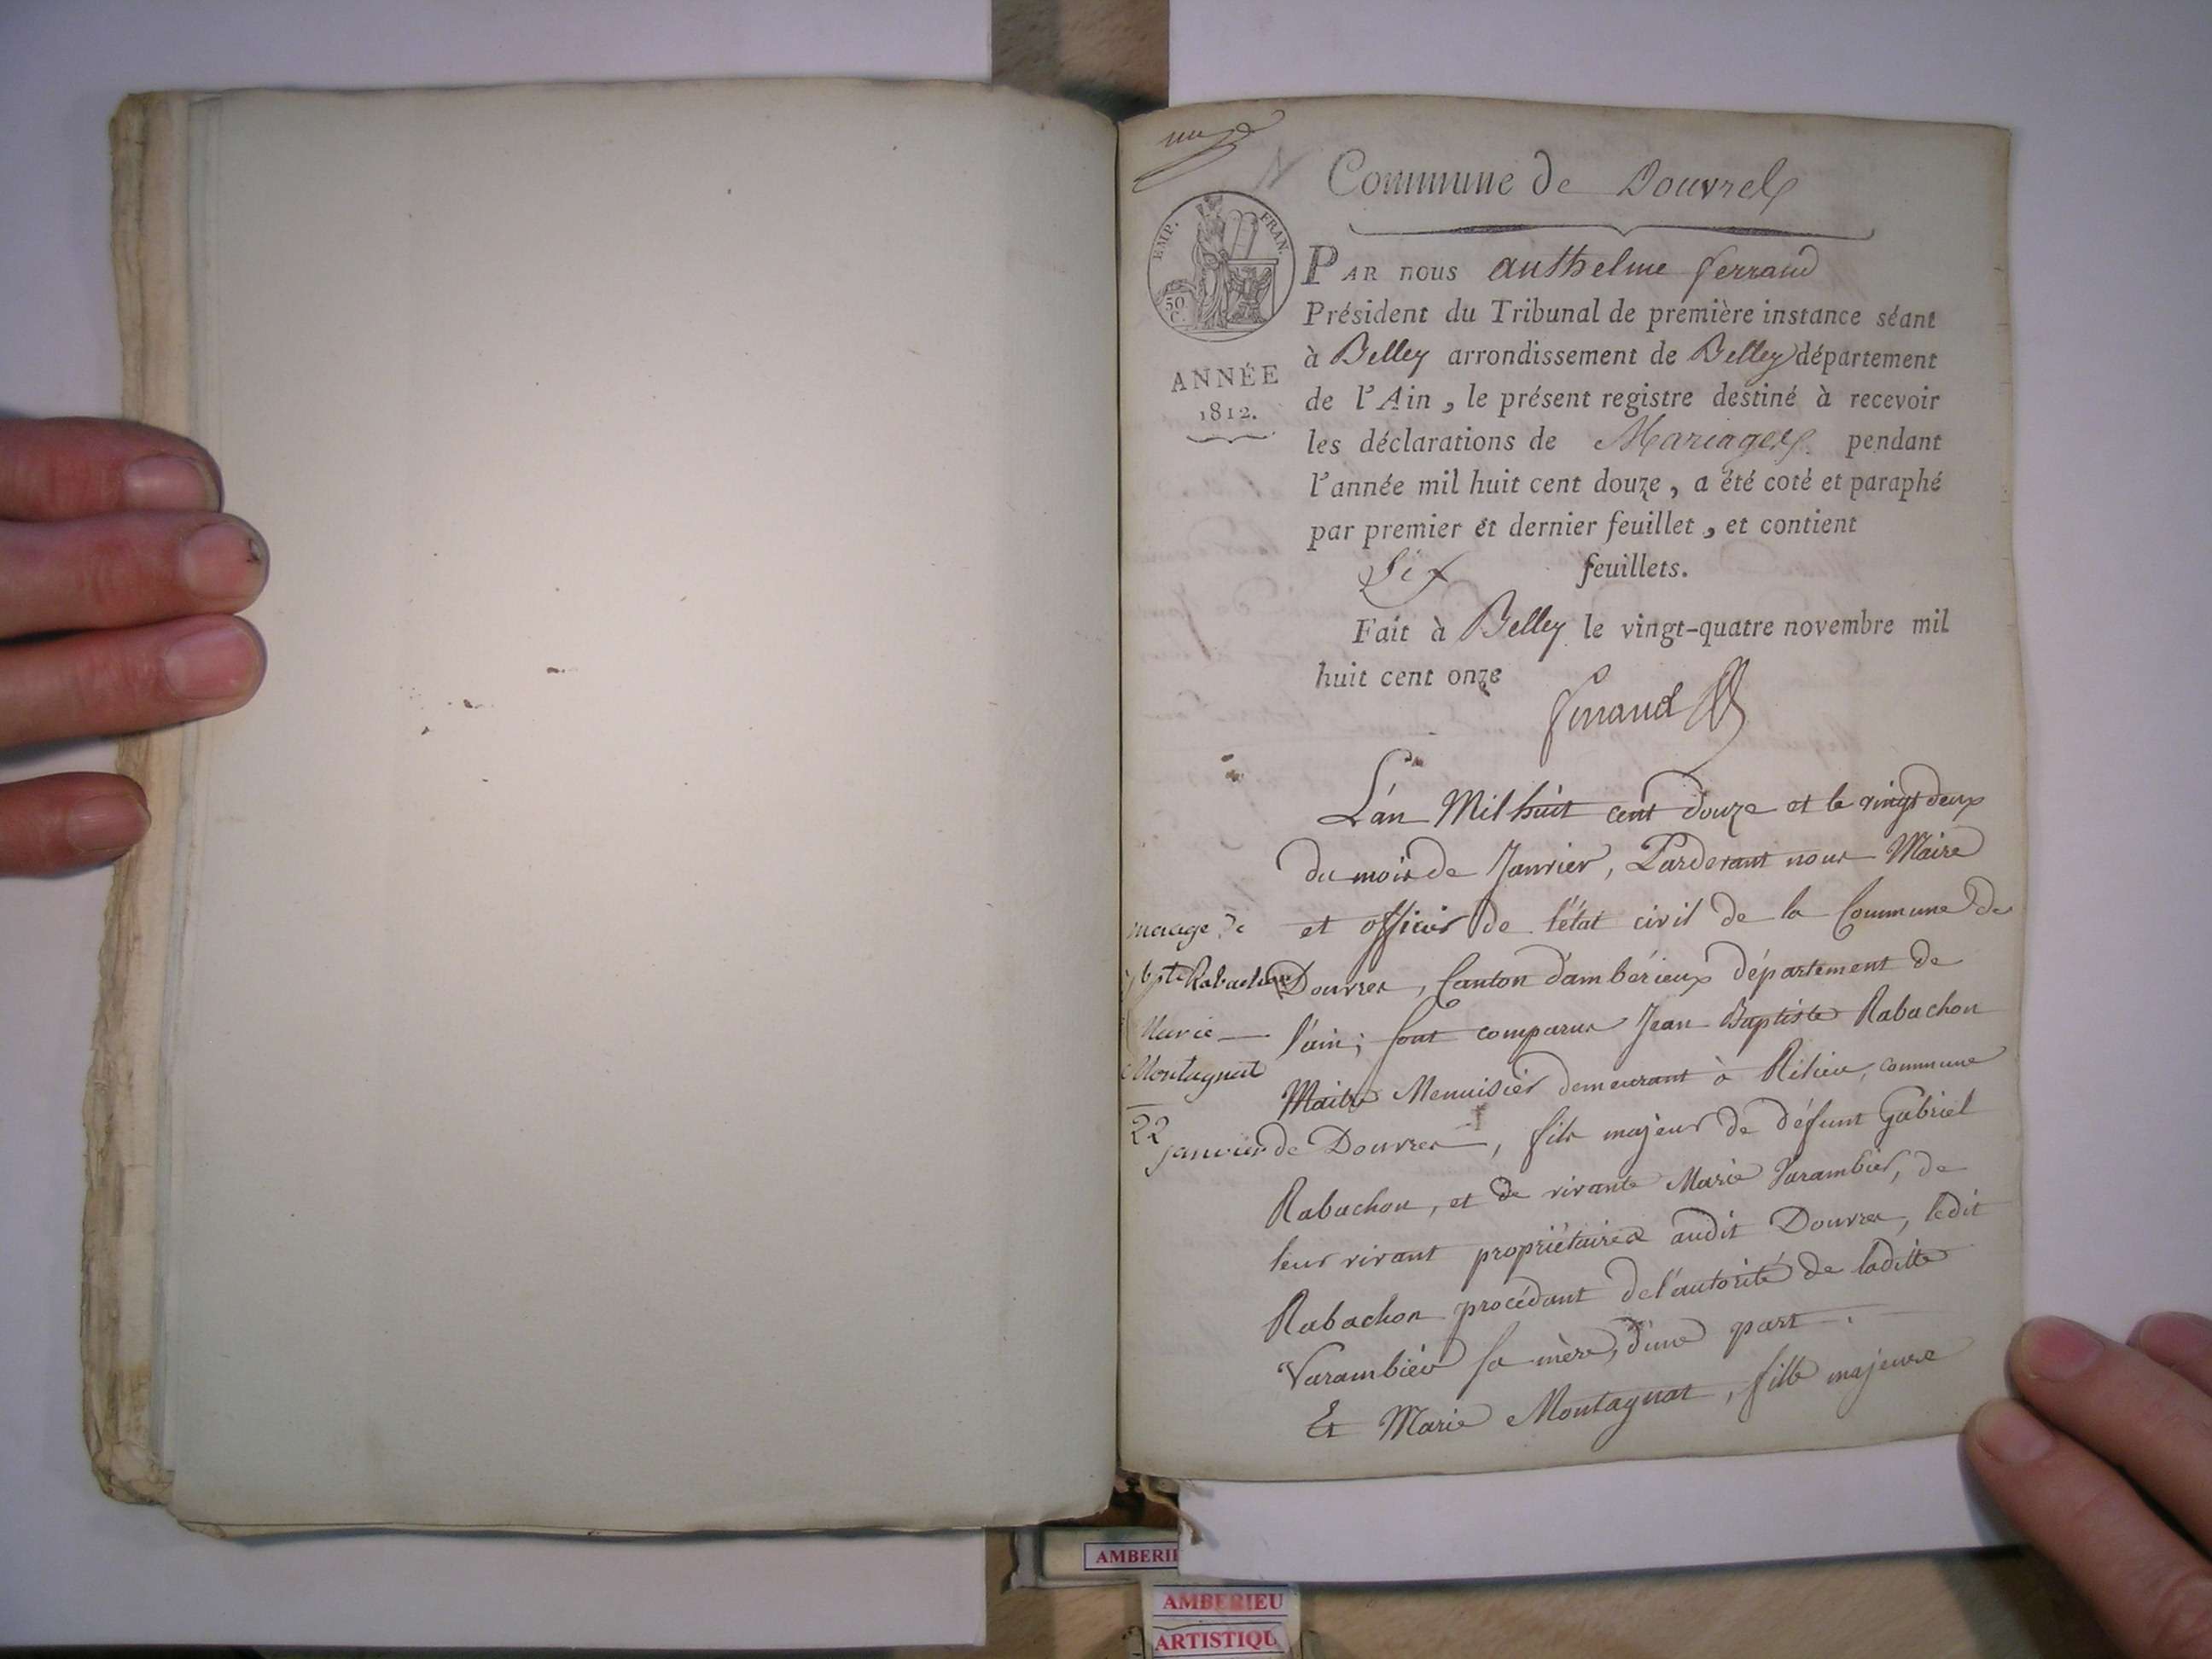 Commune de Douvres
EMP. FRAN.
50
C.
PAR nous anthelme ferrand
Président du Tribunal de première instance séant
à Belley arrondissement de Belley département
ANNÉE
1812.
de l'Ain, le présent registre destiné à recevoir
les déclarations de Mariages pendant
l'année mil huit cent douze, a été coté et paraphé
par premier et dernier feuillet, et contient
Six feuillets.
Fait à Belley le vingt-quatre novembre mil
huit cent onze
ferrand
L'an Mil huit cent douze et le vingt deux
du mois de Janvier, Pardevant nous Maire
et officier de l'état civil de la Commune de
Douvres, Canton d'ambérieux département de
l'ain; sont comparus Jean Baptiste Rabachon
Maitre Menuisier demeurant à Rilieu, commune
de Douvres, fils majeur de défunt Gabriel
Rabachon, et de vivante Marie Varambier, de
leur vivant propriétaires audit Douvres, ledit
Rabachon procédant de l'autorité de laditte
Varambier sa mère, d'une part.
Et Marie Montagnat, fille majeure
mariage de
bpte Rabachon
Marie
Montagnat
22
janvier
AMBERIE
AMBERIEU
ARTISTIQU